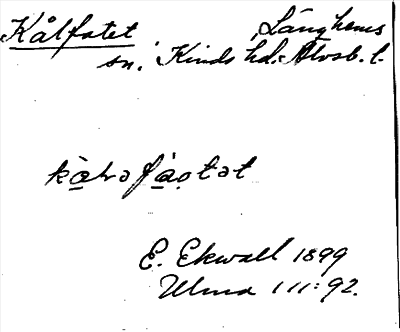 Kålfatet Långhems
sn. Kinds hd. Älvsb. l.
E. Ekwall 1899
Ulma 111:92.